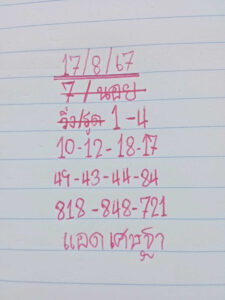 17/8/67
7/นอย
วิ่ง/รูด 1-4
10-12-18-17
49-43-44-84
818-848-721
แอดเศษฐา